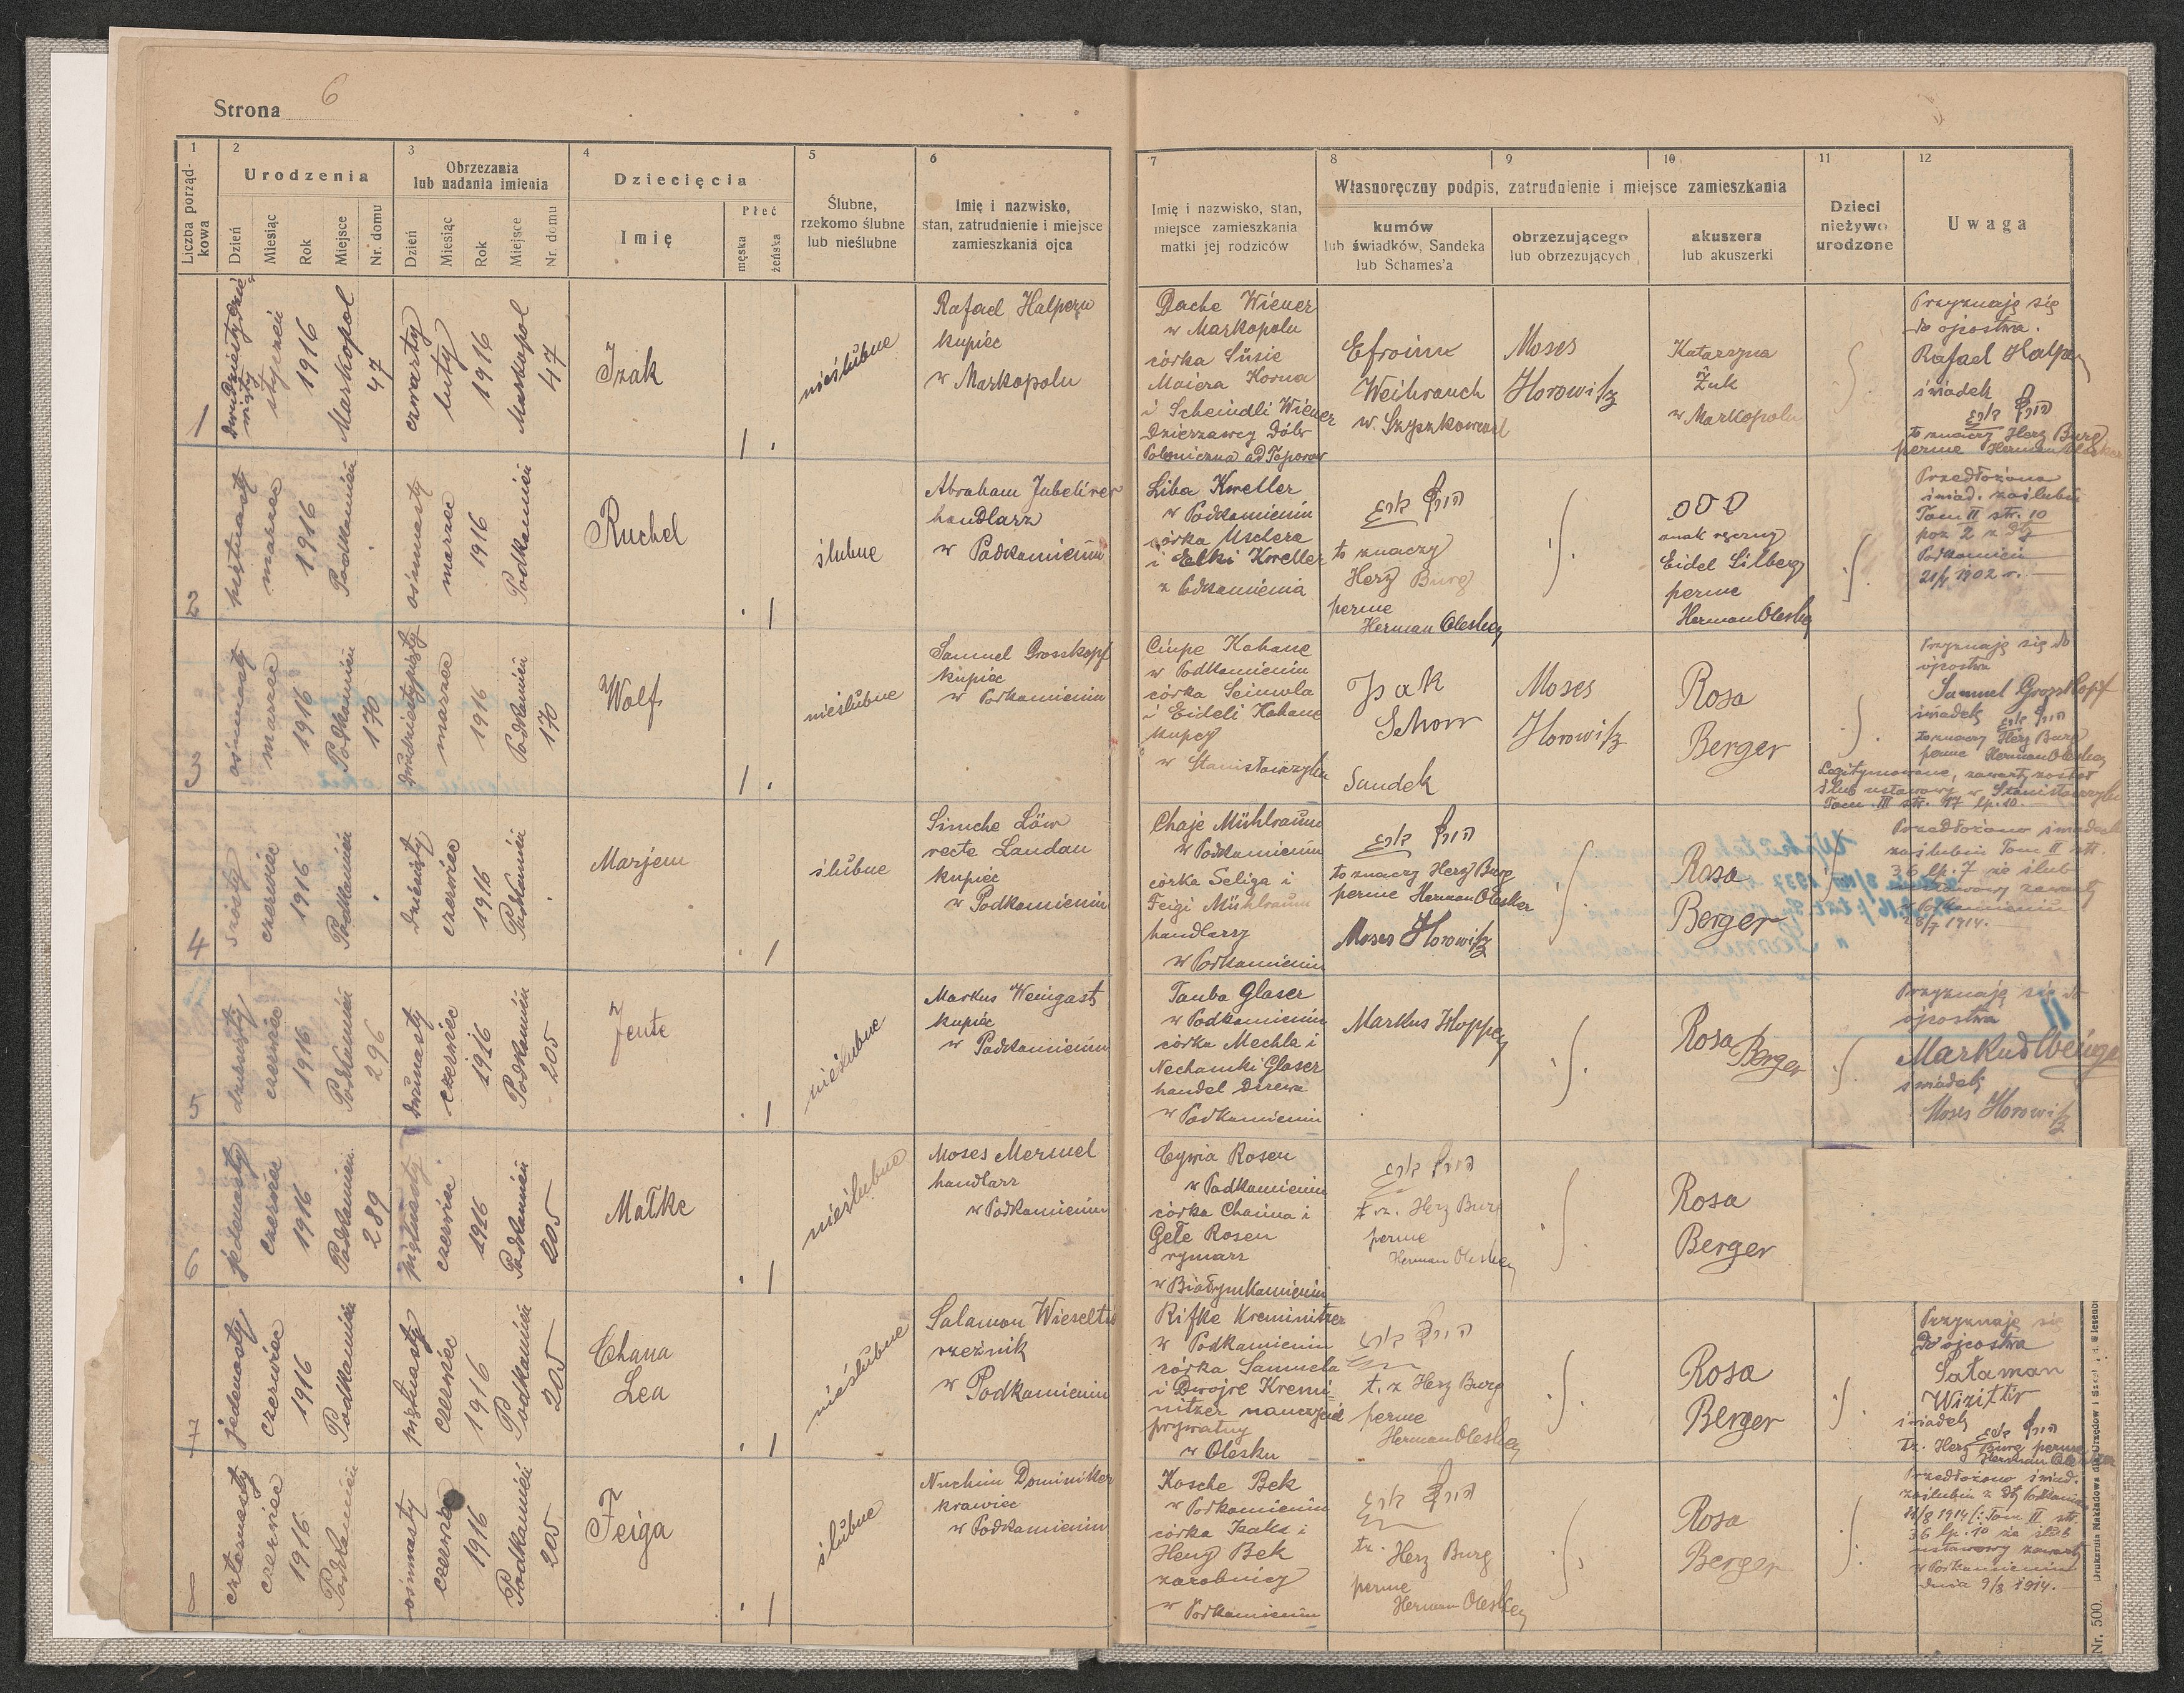 Strona 6
1 2 3 4 5 6
Liczba porząd-
kowa
Urodzenia
Obrzezania
lub nadania imienia
Dziecięcia
Ślubne,
rzekomo ślubne
lub nieślubne
Imię i nazwisko,
stan, zatrudnienie i miejsce
zamieszkania ojca
Dzień Miesiąc Rok Miejsce Nr. domu
Dzień Miesiąc Rok Miejsce Nr. domu
Imię
Płeć
męska żeńska
7 8 9 10 11 12
Imię i nazwisko, stan,
miejsce zamieszkania
matki jej rodziców
Własnoręczny podpis, zatrudnienie i miejsce zamieszkania
kumów
lub świadków, Sandeka
lub Schames'a
obrzezującego
lub obrzezujących
akuszera
lub akuszerki
Dzieci
nieżywo
urodzone
Uwaga
1
styczeń
1916
Markopol
47
czwarty
luty
1916
Markopol
47
Izak
nieślubne
Rafael Halpern
kupiec
w Markopolu
Dache Wiener
w Markopolu
córka Süsie
Maiera Korna
i Scheindli Wiener
Dzierzawcy dóbr
Efroim
Weihrauch
Moses
Horowitz
Katarzyna
Żuk
w Markopolu
Przyznaję się
do ojcostwa.
Rafael Halpern
świadek
הורץ בורג
to znaczy Herz Burg
perme Herman Olesker
2
piętnasty
marzec
1916
Podkamień
ośmnasty
marzec
1916
Podkamień
Ruchel
ślubne
Abraham Jubelirer
handlarz
w Podkamieniu
Liba Kweller
w Podkamieniu
córka Uschera
i Elki Kweller
z Podkamienia
הורץ בורג
to znaczy
Herz Burg
perme
Herman Olesker
000
znak ręczny
Eidel Silberg
perme
Herman Olesker
Przedłożono
świad. zaślubin
Tom II str. 10
poz 2 z dtj
Podkamień
1902 r.
3
ośmnasty
marzec
1916
Podkamień
170
dwudziestypiąty
marzec
1916
Podkamień
170
Wolf
nieślubne
Samuel Grosskopf
kupiec
w Podkamieniu
Cirpe Kahane
w Podkamieniu
córka Seinwola
i Eideli Kahane
kupcy
w Stanisławczyku
Isak
Schorr
Sandek
Moses
Horowitz
Rosa
Berger
Przyznaję się do
ojcostwa
Samuel Grosskopf
świadek הורץ בורג
to znaczy Herz Burg
perme Herman Olesker
Legitymowane, zawarty został
ślub ustawowy w Stanisławczyku
Tom III str. 97 lp. 10.
4
szósty
czerwiec
1916
Podkamień
dziesiąty
czerwiec
1916
Podkamień
Marjem
ślubne
Simche Löw
recte Landau
kupiec
w Podkamieniu
Chaje Mühlraum
w Podkamieniu
córka Seliga i
Feigi Mühlraum
handlarzy
w Podkamieniu
הורץ בורג
to znaczy Herz Burg
perme Herman Olesker
Moses Horowitz
Rosa
Berger
Przedłożono świadect
zaślubin Tom II str.
36 lp. 7 że ślub
ustawowy zawarty
w Podkamieniu
28/7 1914.
5
dziesiąty
czerwiec
1916
Podkamień
296
dwunasty
czerwiec
1916
Podkamień
205
Jente
nieślubne
Markus Weingast
kupiec
w Podkamieniu
Tauba Glaser
w Podkamieniu
córka Mechla i
Nechamki Glaser
handel drzewa
w Podkamieniu
Markus Hoppen
Rosa Berger
Przyznaję się do
ojcostwa
świadek
Moses Horowitz
6
jedenasty
czerwiec
1916
Podkamień
289
piętnasty
czerwiec
1916
Podkamień
205
Matke
nieślubne
Moses Mermel
handlarz
w Podkamieniu
Cywia Rosen
w Podkamieniu
córka Chaima i
Gele Rosen
rymarz
w Białymkamieniu
הורץ בורג
t. z. Herz Burg
perme
Herman Olesker
Rosa
Berger
7
jedenasty
czerwiec
1916
Podkamień
piętnasty
czerwiec
1916
Podkamień
205
Chana
Lea
nieślubne
Salamon Wieseltir
rzeźnik
w Podkamieniu
Rifke Kreminitzer
w Podkamieniu
córka Samuela
i Dwojre Kremi-
nitzer nauczyciel
prywatny
w Olesku
הורץ בורג
t. z Herz Burg
perme
Herman Olesker
Rosa
Berger
Przyznaję się
do ojcostwa
Sałaman
Wizittir
świadek
הורץ בורג
tz. Herz Burg perme
Herman Olesker
czternasty
czerwiec
1916
Podkamień
ośmnasty
czerwiec
1916
Podkamień
205
Feiga
ślubne
Nuchim Dominitker
krawiec
w Podkamieniu
Kosche Bek
w Podkamieniu
córka Izaka i
Heny Bek
zarobnicy
w Podkamieniu
הורץ בורג
tz. Herz Burg
perme
Herman Olesker
Rosa
Berger
Przedłożono świad.
zaślubin z dtj Podkamień
11/8 1914 Tom II str.
36 lp. 10 że ślub
ustawowy zawarty
w Podkamieniu
dnia 9/8 1914.
Nr. 500.